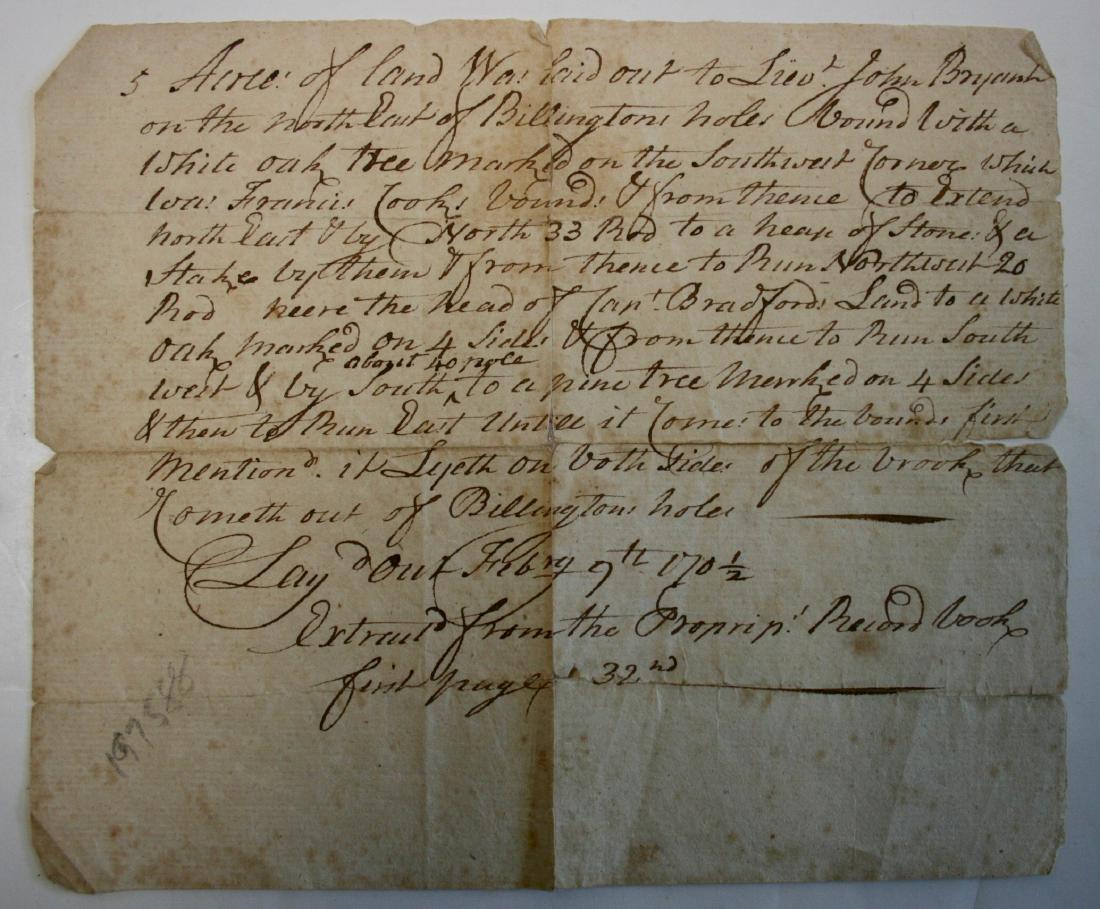 5 Acres of land Was laid out to Lievt John Bryant
on the north East of Billingtons holes Bound With a
White oak tree marked on the Southwest Corner which
was Francis Cooks bounds & from thence to Extend
north East & by North 33 Rod to a heap of Stones & a
Stake by them & from thence to Run Northwest 20
Rod neere the head of Capt Bradfords Land to a white
oak marked on 4 Sides & from thence to Run South
about 40 pole
west & by South ^ to a pine tree Merrked on 4 Sides
& then to Run East Untill it Comes to the bounds first
Mentiond. it Lyeth on both sides of the brook that
Cometh out of Billingtons holes
Layd Out Febry 9th 170½
Extractd from the Propriprs Record book
first page 32nd
197586